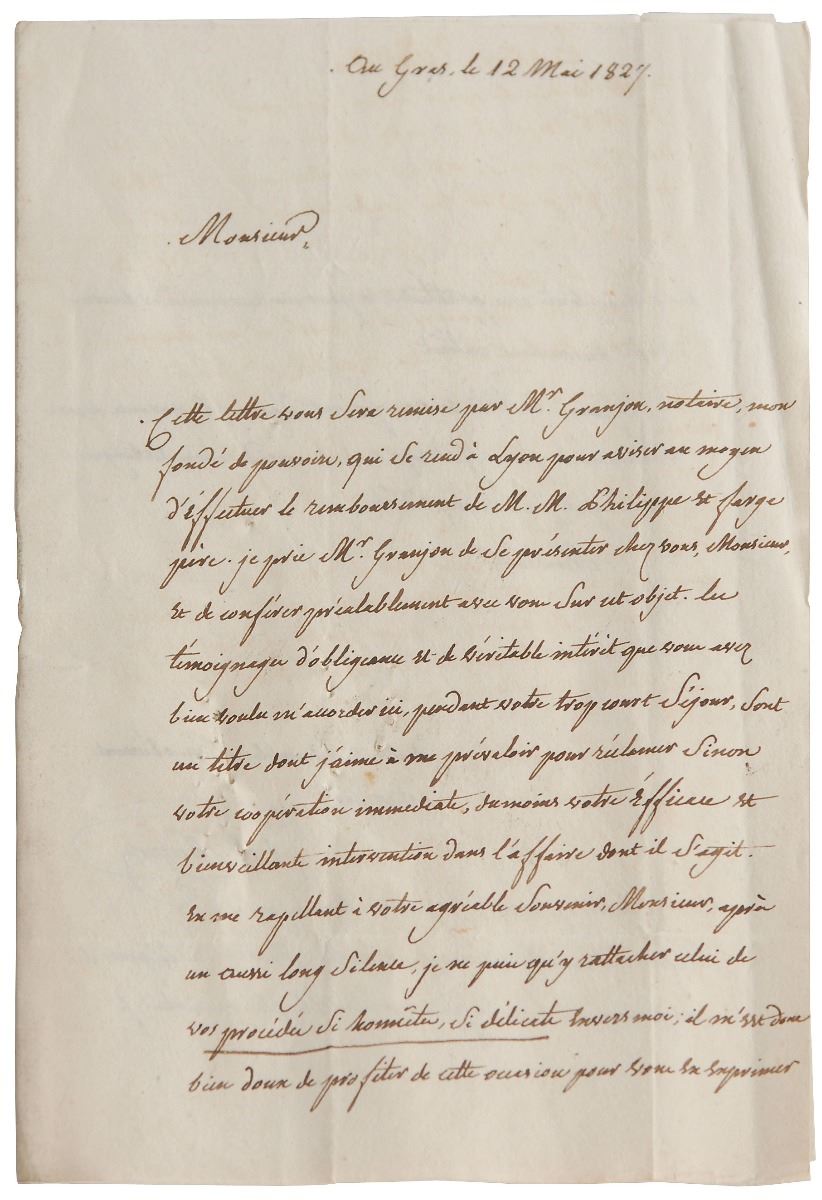 Au Gras, le 12 Mai 1827.
Monsieur,
Cette lettre vous sera remise par Mr. Granjon, notaire, mon
fondé de pouvoirs, qui se rend à Lyon pour aviser au moyen
d'éffectuer le remboursement de M. M. Philippe et farge
père. je prie Mr. Granjon de se présenter chez vous, Monsieur,
et de conférer préalablement avec vous sur cet objet. les
témoignages d'obligeance et de véritable intérêt que vous avez
bien voulu m'accorder ici, pendant votre trop court séjour, sont
un titre dont j'aime à me prévaloir pour réclamer sinon
votre coopération immediate, du moins votre éfficace et
bienveillante intervention dans l'affaire dont il s'agit.
En me rapellant à votre agréable souvenir, Monsieur, après
un aussi long silence, je ne puis qu'y rattacher celui de
vos procédés si honnêtes, si délicats envers moi; il m'est donc
bien doux de profiter de cette occasion pour vous en exprimer